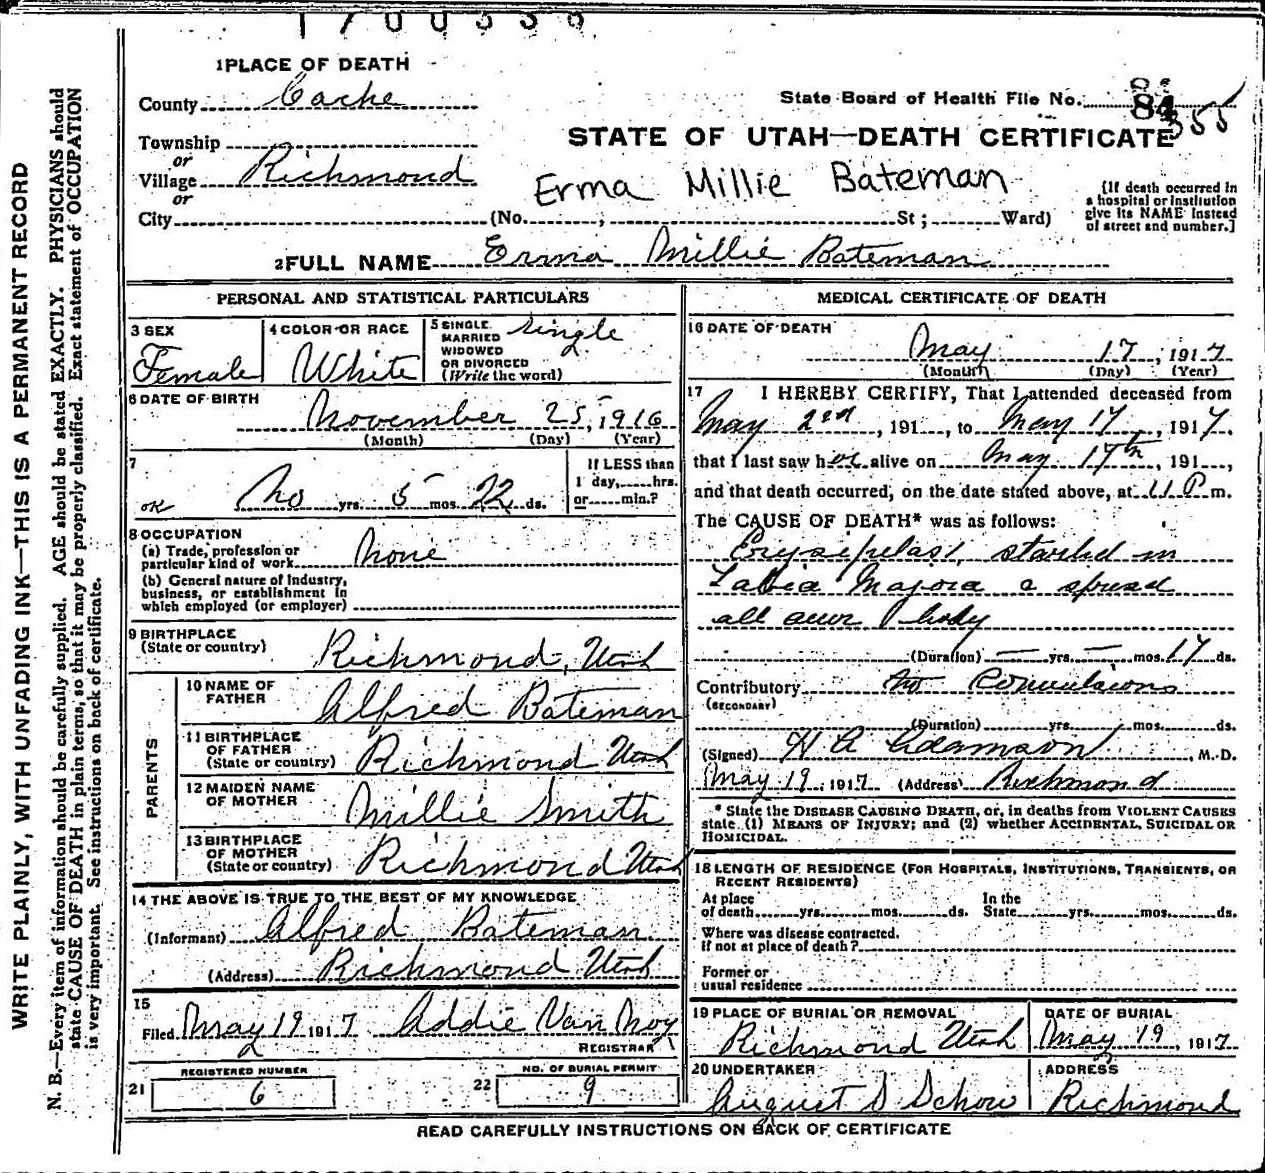 1700336
1 PLACE OF DEATH
County Cache
State Board of Health File No. 84 355
STATE OF UTAH—DEATH CERTIFICATE
Township
or
Village Richmond
or
Erma Millie Bateman
City (No. ; St ; Ward)
[If death occurred in
a hospital or institution
give its NAME instead
of street and number.]
2 FULL NAME Erma Millie Bateman
PERSONAL AND STATISTICAL PARTICULARS
3 SEX
Female
4 COLOR OR RACE
White
5 SINGLE
MARRIED
WIDOWED
OR DIVORCED
(Write the word)
Single
6 DATE OF BIRTH
November 25, 1916
(Month) (Day) (Year)
7
OK No yrs. 5 mos. 22 ds.
If LESS than
1 day, hrs.
or min.?
8 OCCUPATION
(a) Trade, profession or
particular kind of work None
(b) General nature of industry,
business, or establishment in
which employed (or employer)
9 BIRTHPLACE
(State or country) Richmond, Utah
PARENTS
10 NAME OF
FATHER Alfred Bateman
11 BIRTHPLACE
OF FATHER
(State or country) Richmond Utah
12 MAIDEN NAME
OF MOTHER Millie Smith
13 BIRTHPLACE
OF MOTHER
(State or country) Richmond Utah
14 THE ABOVE IS TRUE TO THE BEST OF MY KNOWLEDGE
(Informant) Alfred Bateman
(Address) Richmond Utah
15
Filed May 19 1917 Addie Van Noy
REGISTRAR
21 REGISTERED NUMBER
6
22 NO. OF BURIAL PERMIT
9
MEDICAL CERTIFICATE OF DEATH
16 DATE OF DEATH
May 17, 1917
(Month) (Day) (Year)
17 I HEREBY CERTIFY, That I attended deceased from
May 2nd, 191 , to May 17, 1917,
that I last saw her alive on May 17th, 191 ,
and that death occurred, on the date stated above, at 11 P m.
The CAUSE OF DEATH* was as follows:
Erysipelas, started in
Labia Majora & spread
all over body
(Duration) — yrs. — mos. 17 ds.
Contributory Convulsions
(SECONDARY)
(Duration) yrs. mos. ds.
(Signed) H A Adamson, M.D.
May 19, 1917 (Address) Richmond
* State the DISEASE CAUSING DEATH, or, in deaths from VIOLENT CAUSES
state (1) MEANS OF INJURY; and (2) whether ACCIDENTAL, SUICIDAL OR
HOMICIDAL.
18 LENGTH OF RESIDENCE (FOR HOSPITALS, INSTITUTIONS, TRANSIENTS, OR
RECENT RESIDENTS)
At place
of death yrs. mos. ds.
In the
State yrs. mos. ds.
Where was disease contracted,
If not at place of death?
Former or
usual residence
19 PLACE OF BURIAL OR REMOVAL
Richmond Utah
DATE OF BURIAL
May 19, 1917
20 UNDERTAKER
August S Schow
ADDRESS
Richmond
READ CAREFULLY INSTRUCTIONS ON BACK OF CERTIFICATE
WRITE PLAINLY, WITH UNFADING INK—THIS IS A PERMANENT RECORD
N. B.—Every item of information should be carefully supplied. AGE should be stated EXACTLY. PHYSICIANS should
state CAUSE OF DEATH in plain terms, so that it may be properly classified. Exact statement of OCCUPATION
is very important. See instructions on back of certificate.